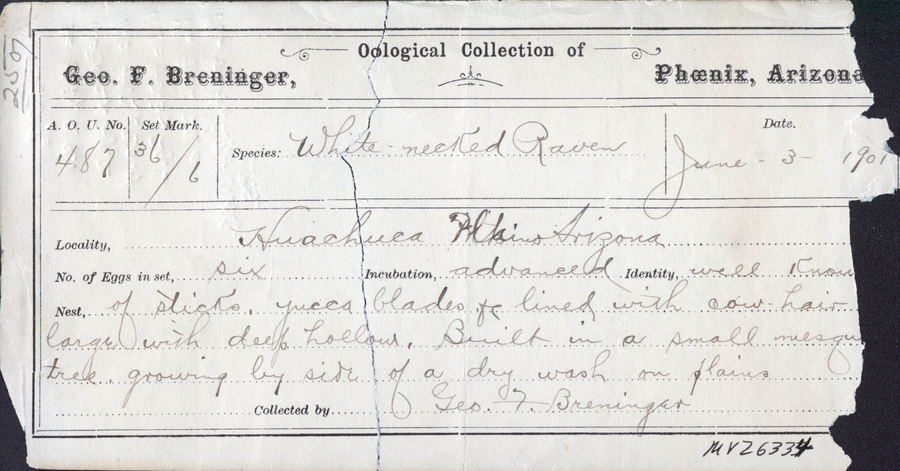 2507
Oological Collection of
Geo. F. Breninger, Phœnix, Arizona
A. O. U. No. Set Mark. Date.
487 36/6 Species: White-necked Raven June - 3 - 1901
Locality, Huachuca Plains Arizona
No. of Eggs in set, six Incubation, advanced Identity, well know
Nest, of sticks, yucca blades &c lined with cow-hair
large with deep hollow. Built in a small mesqu
tree growing by side of a dry wash on plains
Collected by Geo. F. Breninger
MVZ6334